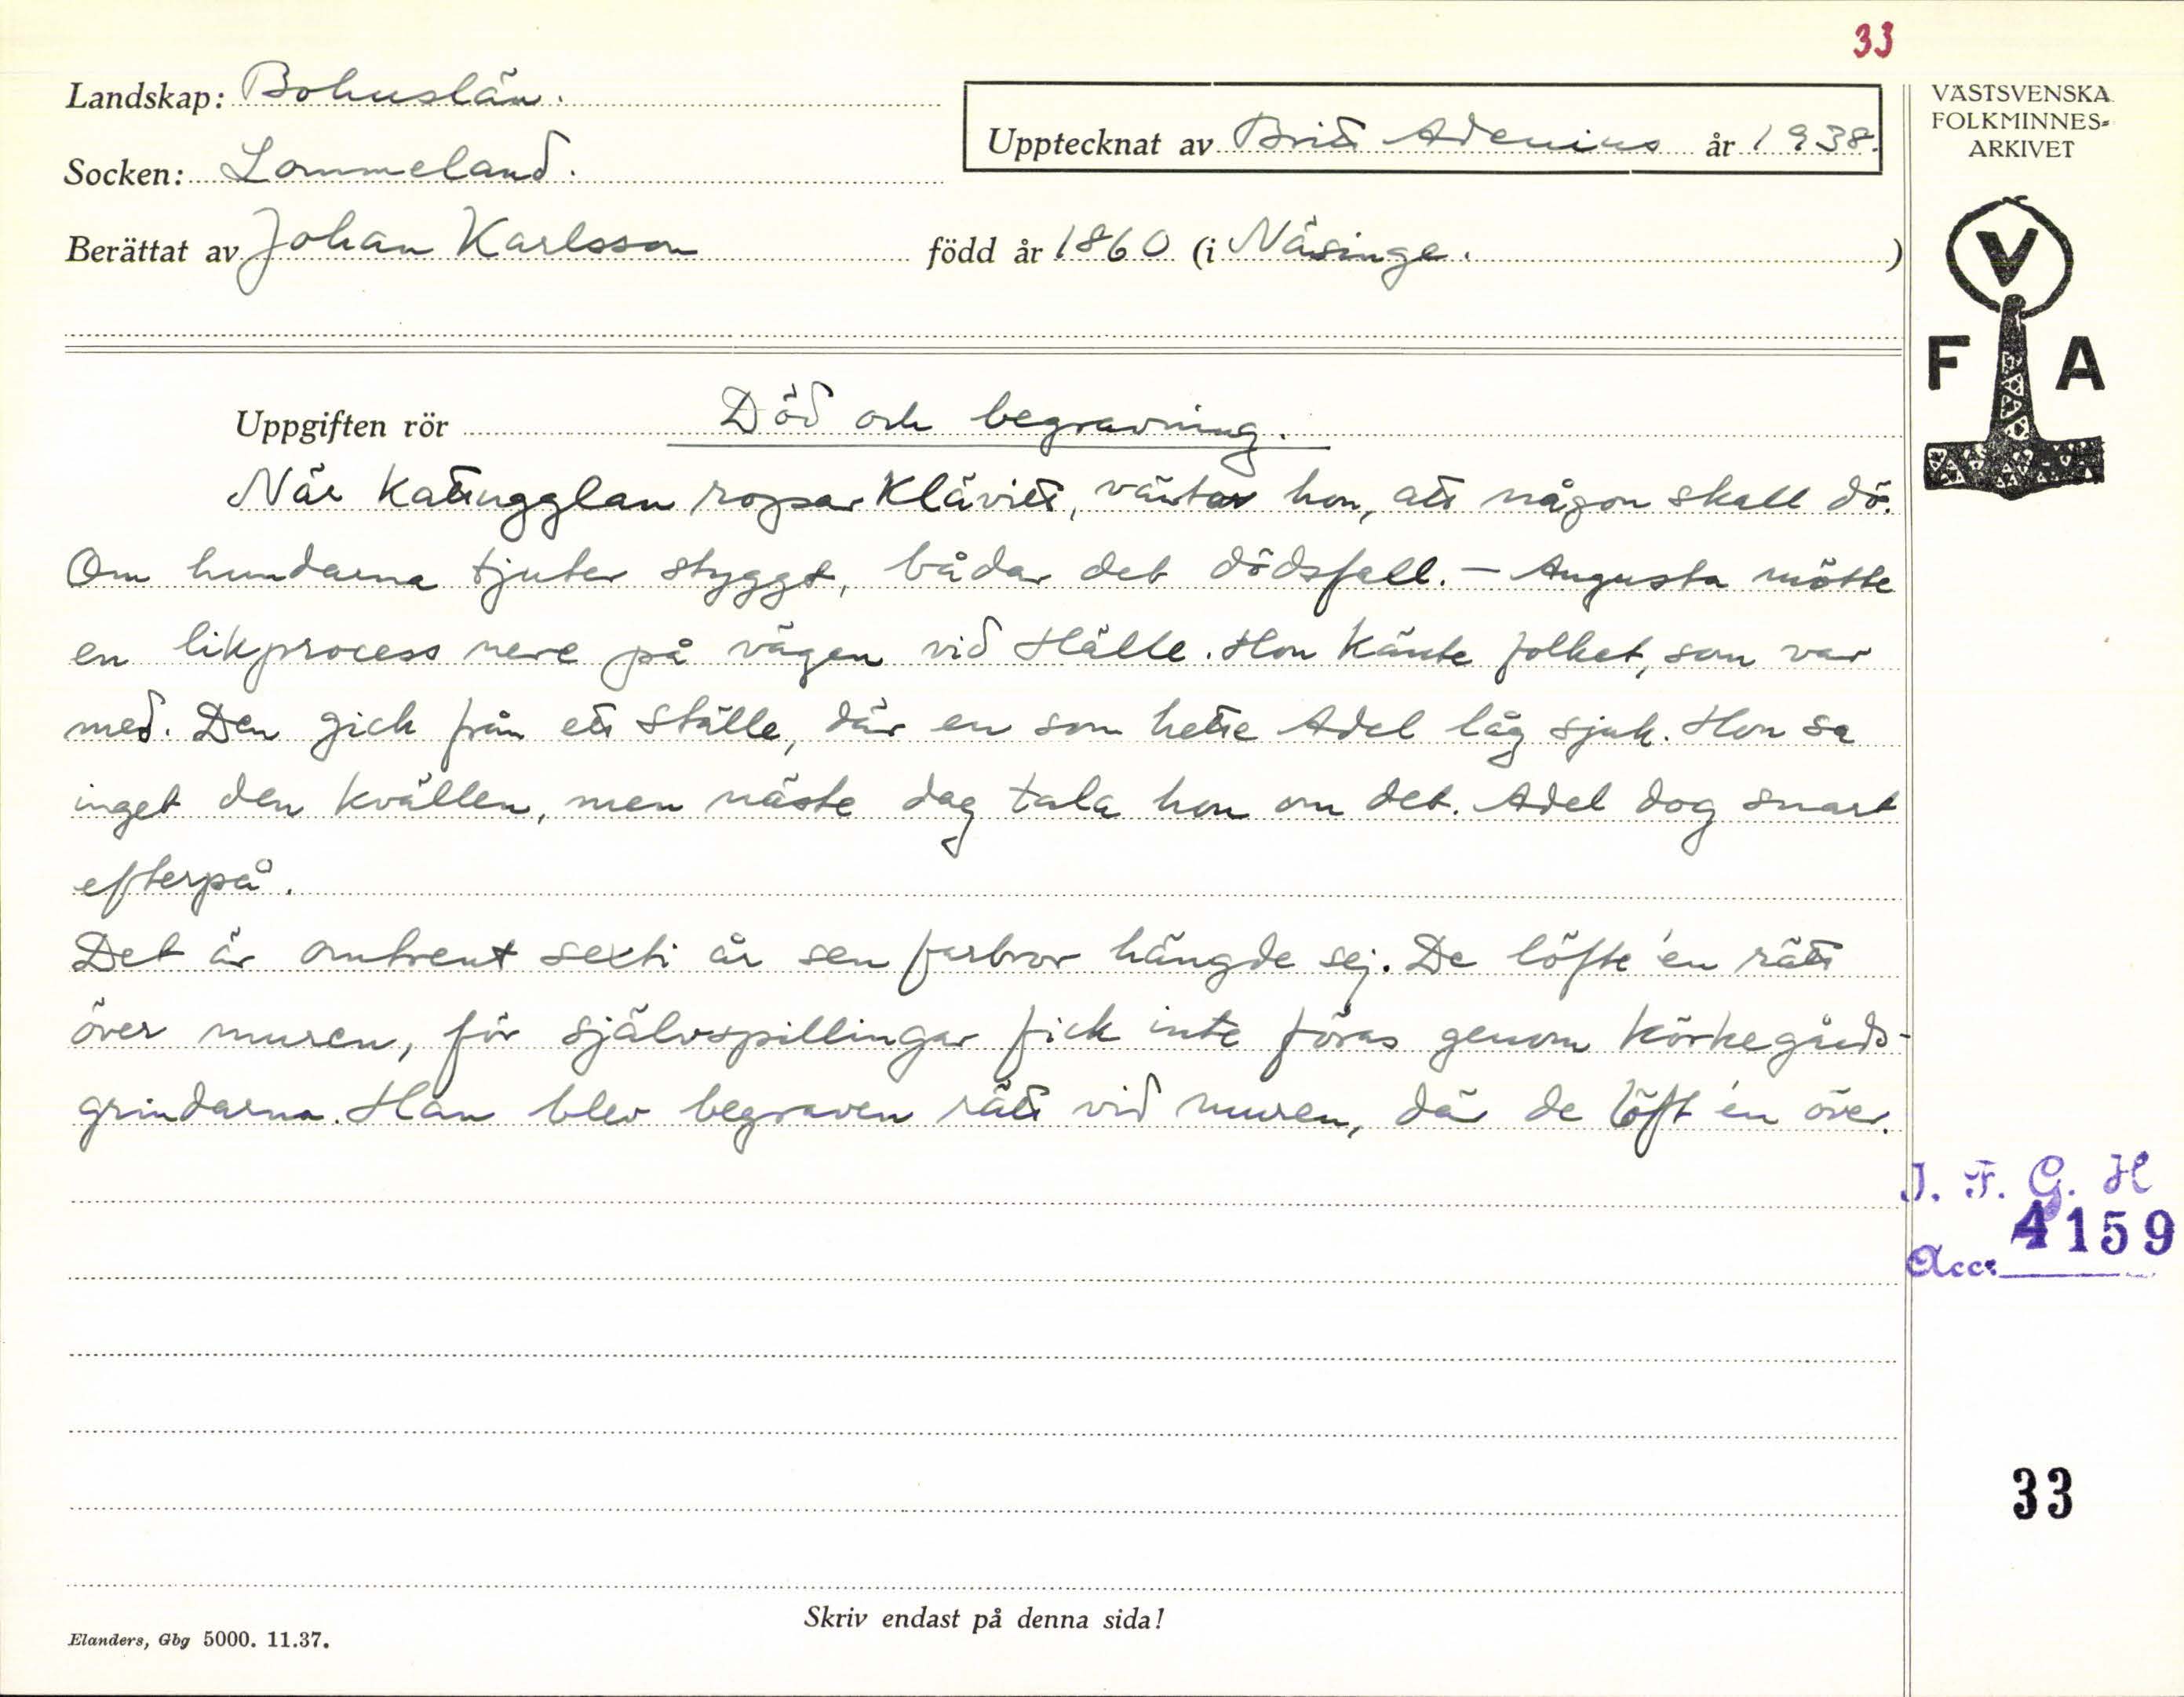 33
Landskap: Bohuslän.
Socken: Lommeland.
Berättat av Johan Karlsson född år 1860 (i Näsinge. )
Upptecknat av Britt Adenius år 1938.
VÄSTSVENSKA
FOLKMINNES=
ARKIVET
V
F A
Uppgiften rör Död och begravning.
När kattugglan ropar Klävitt, väntar hon, att någon skall dö.
Om hundarna tjuter styggt, bådar det dödsfall. – Augusta mötte
en likprocess nere på vägen vid Hälle. Hon kände folket, som var
med. Den gick från ett ställe, där en som hette Adel låg sjuk. Hon sa
inget den kvällen, men näste dag tala hon om det. Adel dog snart
efterpå.
Det är omtrent sexti år sen farbror hängde sej. De löfte 'en rätt
över muren, för självspillingar fick inte föras genom körkegårds-
grindarna. Han blev begraven rätt vid muren, där de löft 'en över.
I. F. G. H
4159
Acc.
33
Skriv endast på denna sida!
Elanders, Gbg 5000. 11.37.